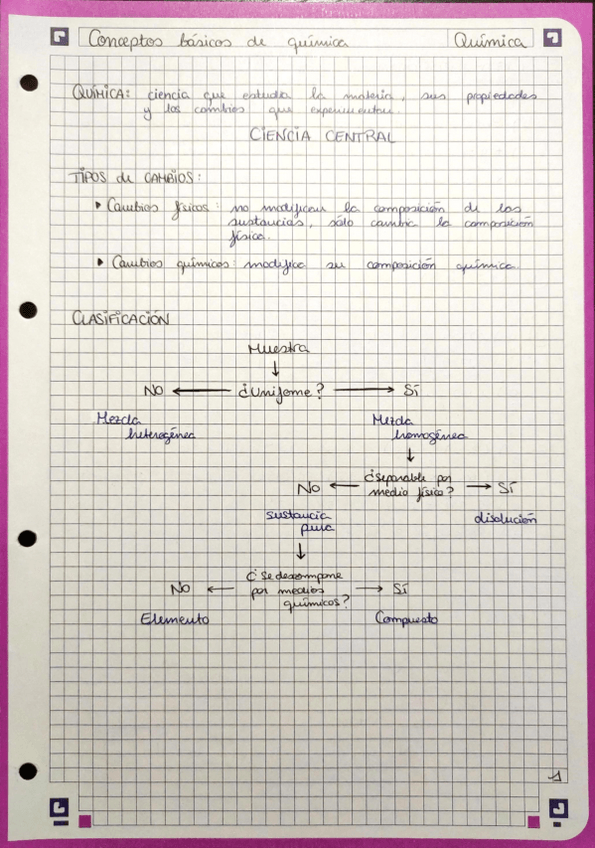 Conceptos básicos de química
Química
QUÍMICA: ciencia que estudia la materia, sus propiedades
y los cambios que experimentan.
CIENCIA CENTRAL
TIPOS de CAMBIOS:
▸ Cambios físicos: no modifican la composición de las
sustancias, sólo cambia la composición
física.
▸ Cambios químicos: modifica su composición química.
CLASIFICACIÓN
Muestra
↓
NO ← ¿Uniforme? → Sí
Mezcla
heterogénea
Mezcla
homogénea
↓
No ← ¿Separable por
medio físico? → Sí
sustancia
pura
disolución
↓
No ← ¿Se descompone
por medios
químicos? → Sí
Elemento
Compuesto
1